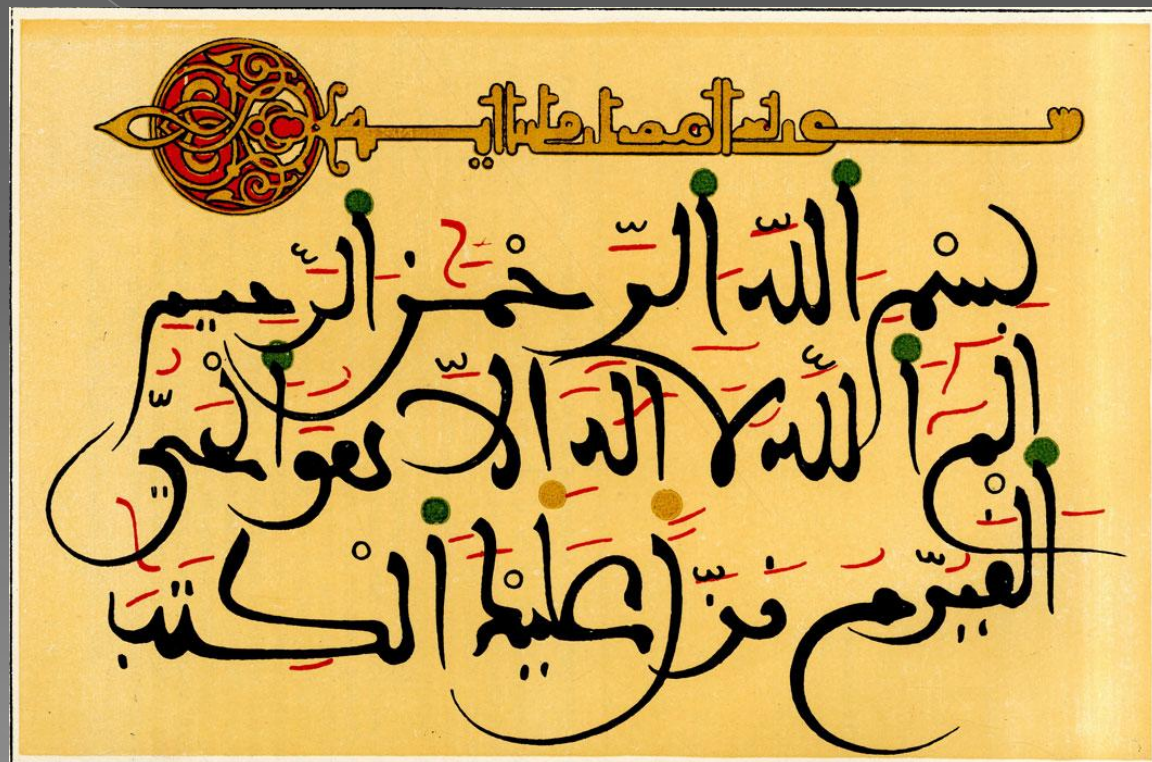 سورة ال عمران مايتا اية
بِسْمِ اللَّهِ الرَّحْمَٰنِ الرَّحِيمِ
الٓمٓ اللَّهُ لَا إِلَٰهَ إِلَّا هُوَ الْحَيُّ
الْقَيُّومُ نَزَّلَ عَلَيْكَ الْكِتَٰبَ